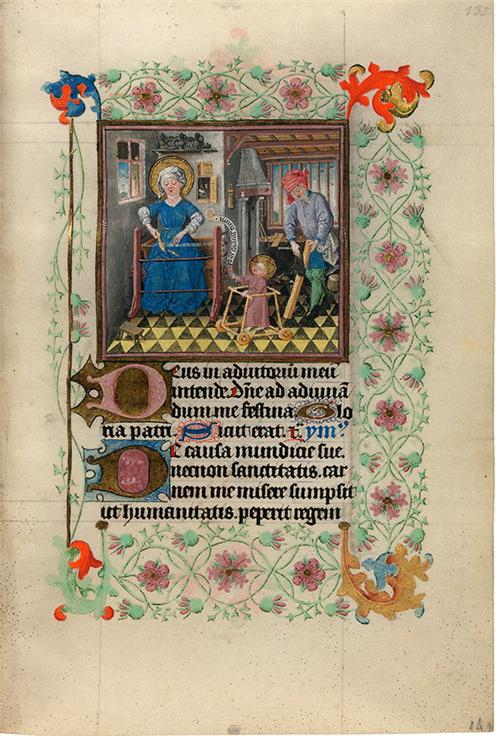 135
Deus in adiutoriū meū
intende. Dn̄e ad adiuuā
dum me festina. Glo
ria patri. Sicut erat. ym̄
De causa mundicie sue
necnon sanctitatis. car
nem me misere sumpsit
ut humanitatis. peperit regem